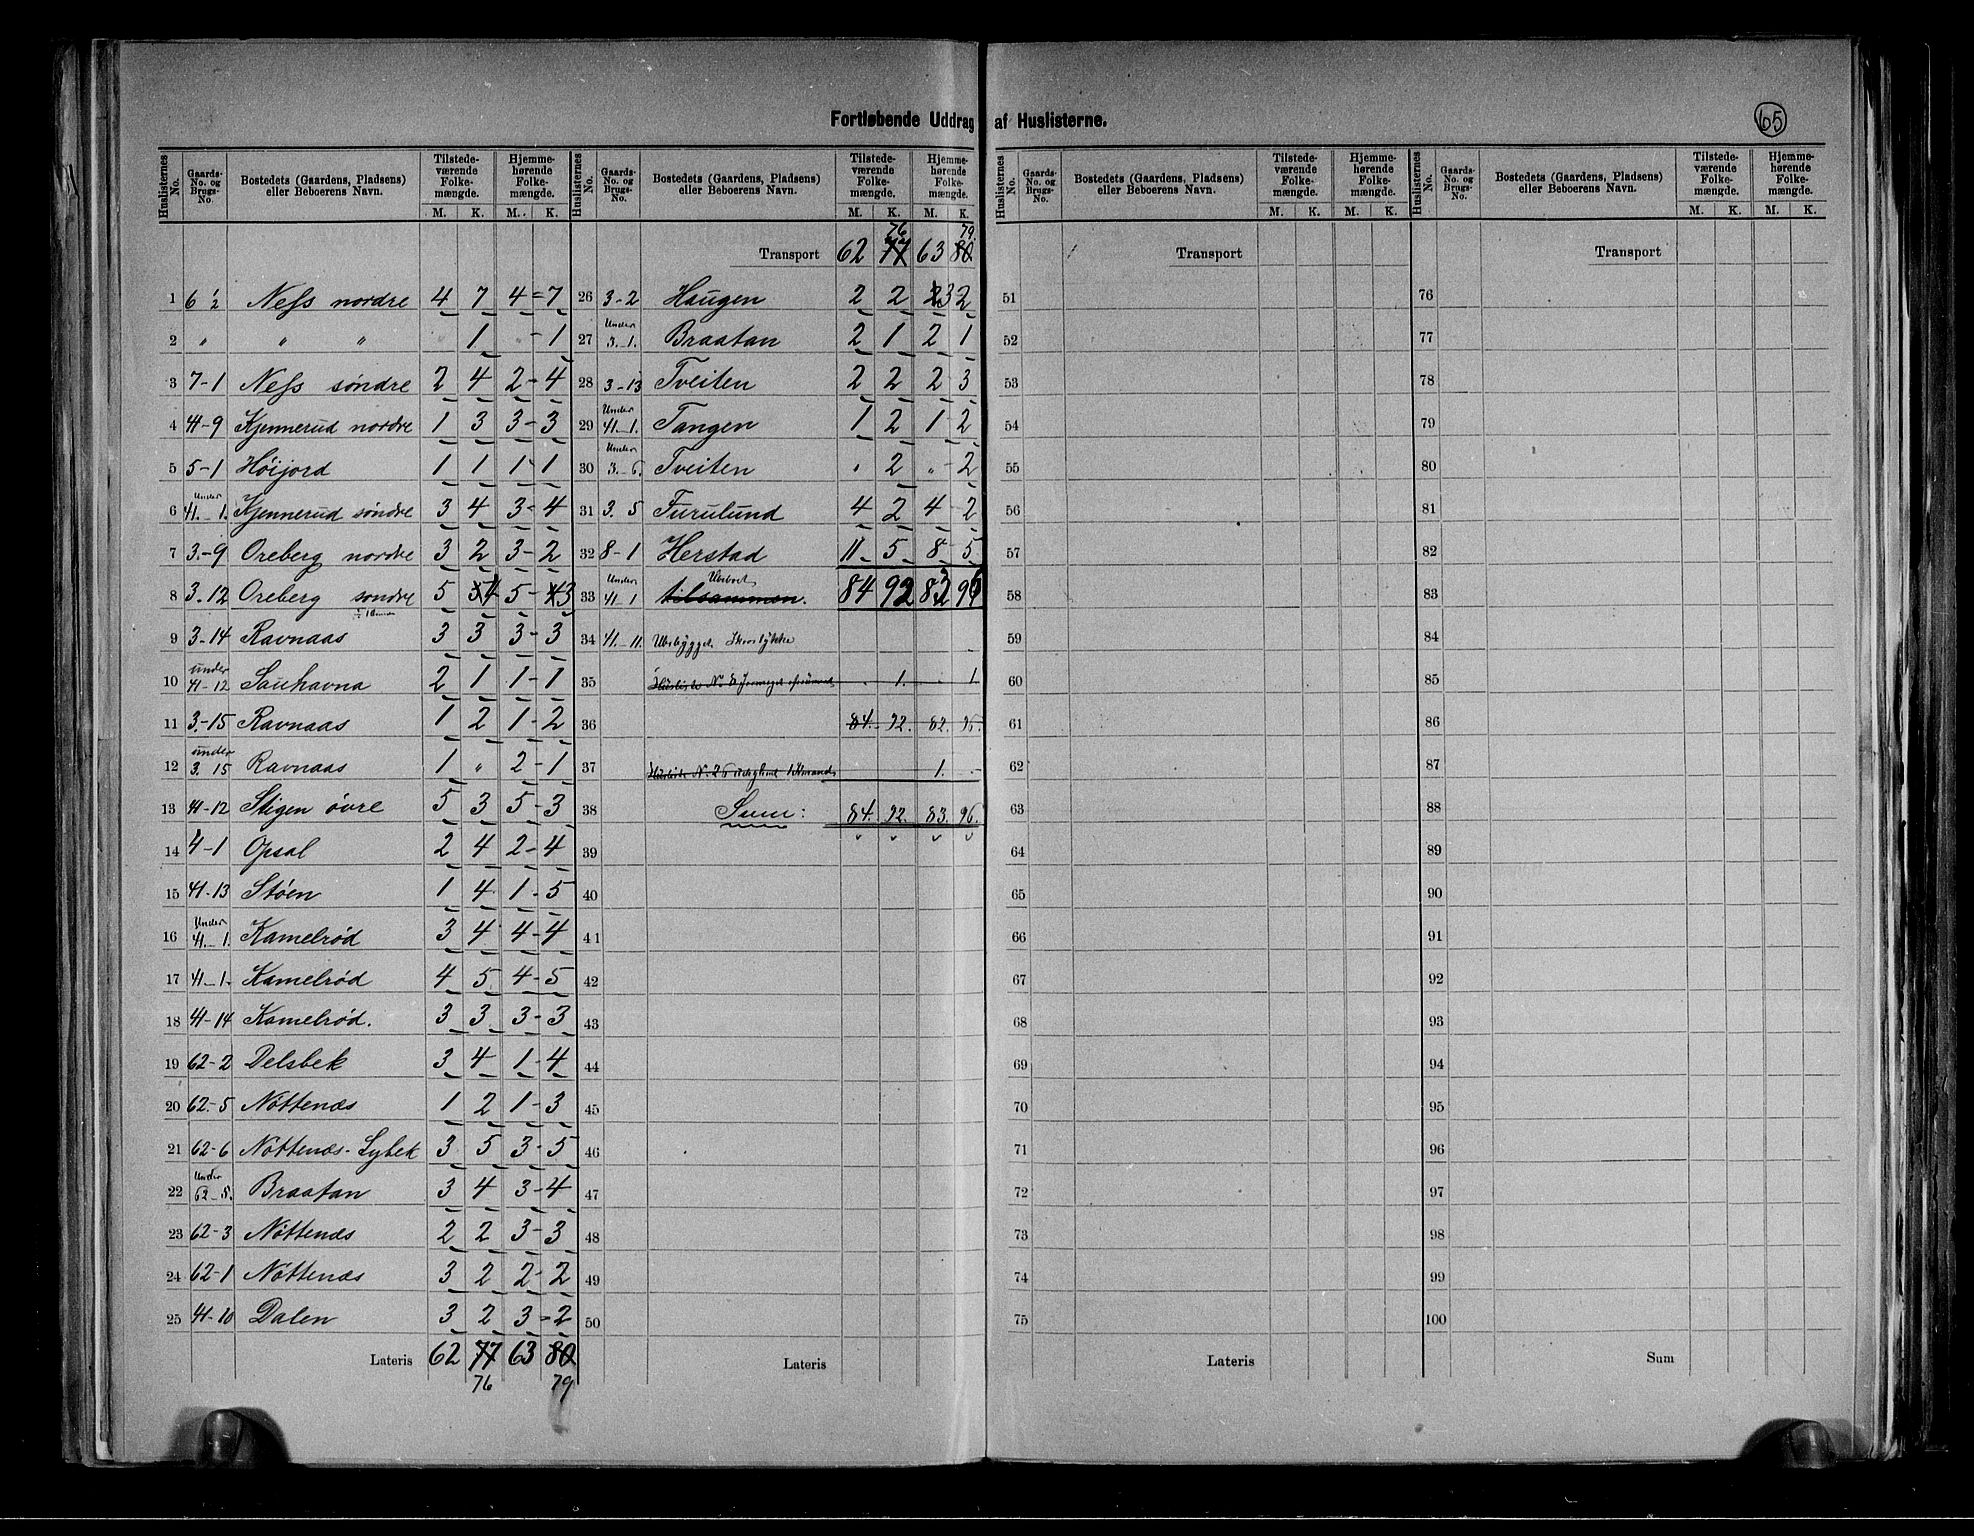 Fortløbende Uddrag af Huslisterne.
65
Huslisternes No. | Gaards-No. og Brugs-No. | Bostedets (Gaardens, Pladsens) eller Beboerens Navn. | Tilstedeværende Folkemængde. M. K. | Hjemmehørende Folkemængde. M. K.
1 6 2 Ness nordre 4 7 4 = 7
2 " " " " 1 " - 1
3 7-1 Ness søndre 2 4 2 - 4
4 41-9 Kjennerud nordre 1 3 3 - 3
5 5-1 Höijord 1 1 1 - 1
6 Under 41.-1. Kjennerud søndre 3 4 3 - 4
7 3.-9 Oreberg nordre 3 2 3 - 2
8 3.12 Oreberg søndre 5 4 5 - 3
9 3-14 Ravnaas 3 3 3 - 3
10 under 41-12 Sauhavna 2 1 1 - 1
11 3.-15 Ravnaas 1 2 1 - 2
12 under 3. 15 Ravnaas 1 " 2 - 1
13 41-12 Stigen övre 5 3 5 - 3
14 4-1 Opsal 2 4 2 - 4
15 41-13 Stöen 1 4 1 - 5
16 Under 41.-1. Kamelrød 3 4 4 - 4
17 41-1. Kamelrød 4 5 4 - 5
18 41-14 Kamelrød. 3 3 3 - 3
19 62-2 Delsbek 3 4 1 - 4
20 62.-5 Nöttenæs 1 2 1 - 3
21 62-6 Nöttenæs-Lybek 3 5 3 - 5
22 Under 62-8. Braatan 3 4 3 - 4
23 62-3 Nöttenæs 2 2 3 - 3
24 62-1 Nöttenæs 3 2 2 - 2
25 41-10 Dalen 3 2 3 = 2
Lateris 62 77 63 80
76 79
Huslisternes No. | Gaards-No. og Brugs-No. | Bostedets (Gaardens, Pladsens) eller Beboerens Navn. | Tilstedeværende Folkemængde. M. K. | Hjemmehørende Folkemængde. M. K.
76 79.
Transport 62 77 63 80
26 3-2 Haugen 2 2 3 2
27 Under 3.-1. Braatan 2 1 2 1
28 3-13 Tveiten 2 2 2 - 3
29 Under 41.-1. Tangen 1 2 1 - 2
30 Under 3.-6. Tveiten " 2 " - 2
31 3. 5 Furulund 4 2 4 - 2
32 8-1 Herstad 11 5 8 - 5
33 Under 41-1 Ubeboet tilsammen. 84 92 83 96
34 41.-11. Ubebygget
35 Husliste No 8 . 1. . 1
36 84. 92. 82. 95.
37 Husliste No. 26 1. -
38 Sum: 84. 92. 83. 96.
39
40
41
42
43
44
45
46
47
48
49
50
Lateris
Huslisternes No. | Gaards-No. og Brugs-No. | Bostedets (Gaardens, Pladsens) eller Beboerens Navn. | Tilstedeværende Folkemængde. M. K. | Hjemmehørende Folkemængde. M. K.
Transport
51
52
53
54
55
56
57
58
59
60
61
62
63
64
65
66
67
68
69
70
71
72
73
74
75
Lateris
Huslisternes No. | Gaards-No. og Brugs-No. | Bostedets (Gaardens, Pladsens) eller Beboerens Navn. | Tilstedeværende Folkemængde. M. K. | Hjemmehørende Folkemængde. M. K.
Transport
76
77
78
79
80
81
82
83
84
85
86
87
88
89
90
91
92
93
94
95
96
97
98
99
100
Sum